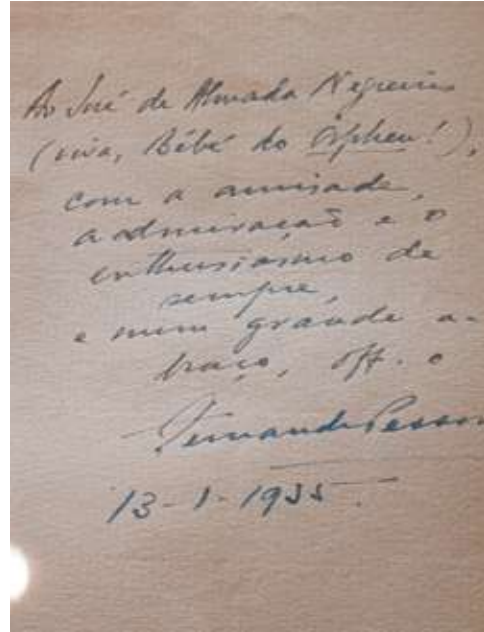 Ao José de Almada Negreiros
(viva, Bébé do Orpheu!),
com a amisade,
a admiração e o
enthusiasmo de
sempre,
e num grande a-
braço, off. o
Fernando Pessoa
13-1-1935.